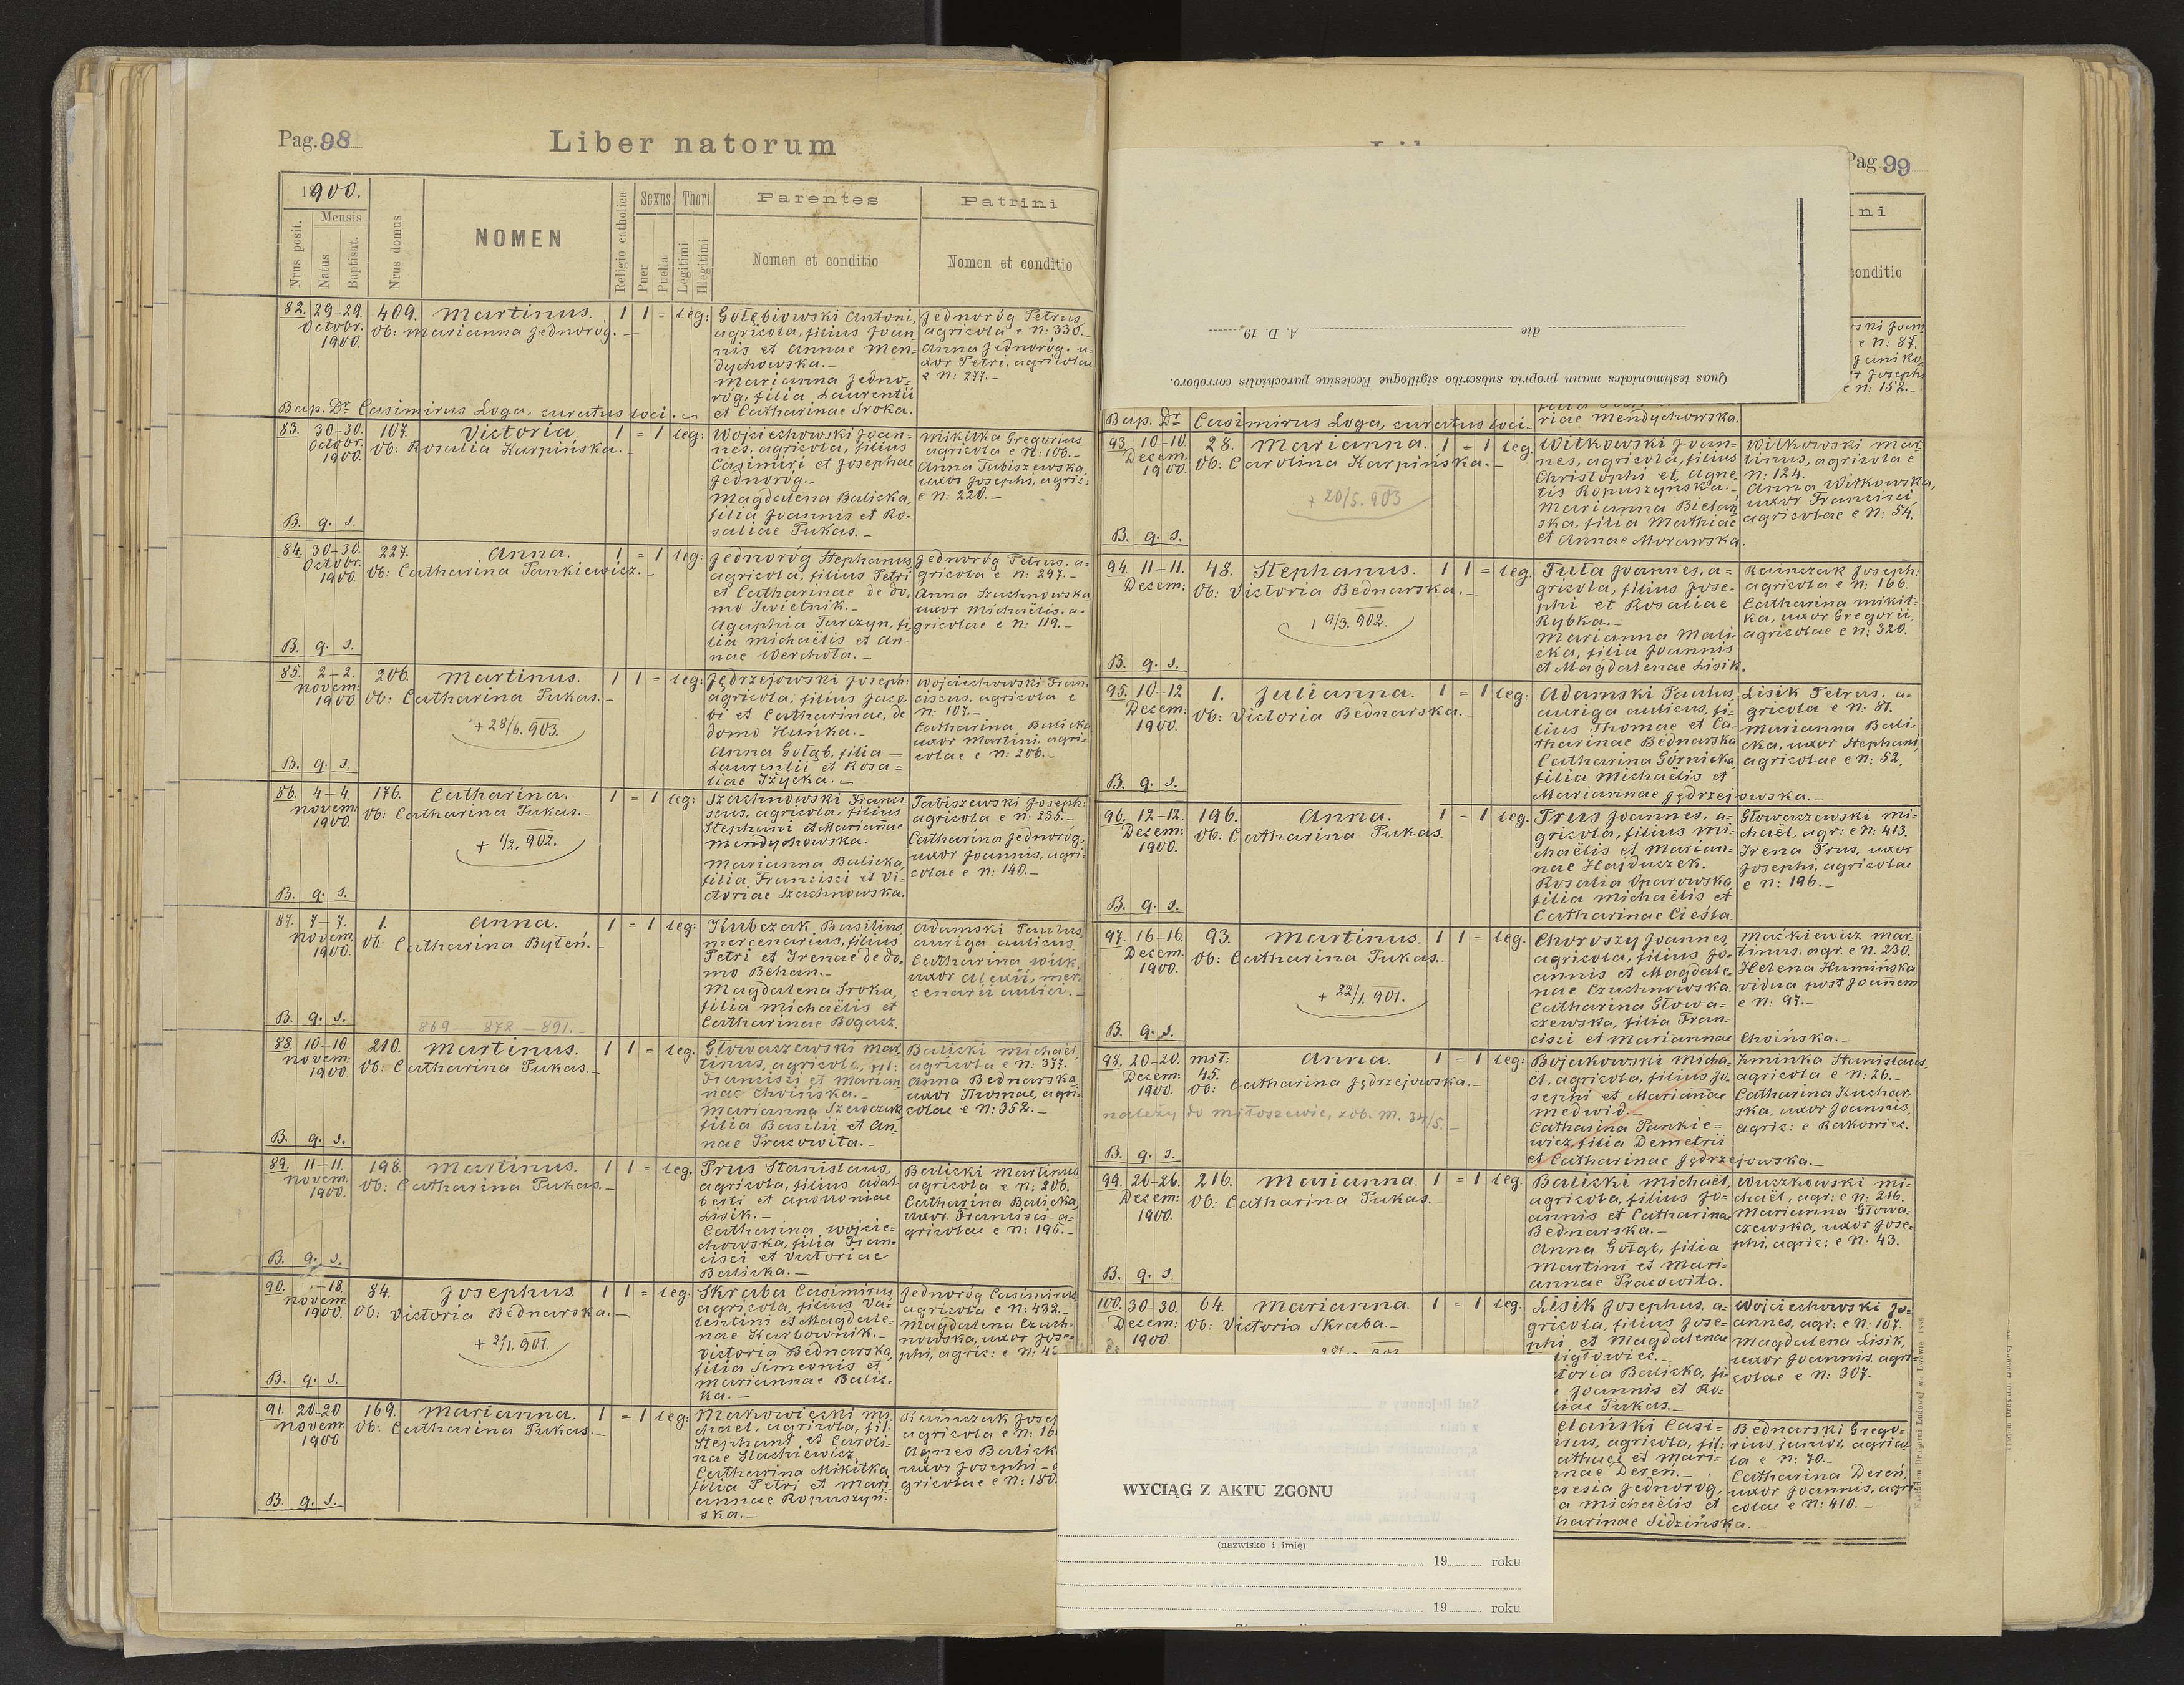 Pag. 98
Liber natorum
1900.
Nrus posit.
Mensis
Natus
Baptisat.
Nrus domus
NOMEN
Religio catholica
Sexus
Puer
Puella
Thori
Legitimi
Illegitimi
Parentes
Nomen et conditio
Patrini
Nomen et conditio
82. 29-29. Octobr. 1900. 409. Martinus. 1 1 = leg:
Ob: Marianna Jednoróg. —
Gołębiowski Antoni,
agricola, filius Joan-
nis et Annae Men-
dychowska. —
Marianna Jedno-
róg, filia Laurentii
et Catharinae Sroka.
Jednoróg Petrus,
agricola e N: 330. —
Anna Jednoróg, u-
xor Petri, agricolae
e N: 277. —
Bap. Dr Casimirus Loga, curatus loci. —
83. 30-30. Octobr. 1900. 107. Victoria. 1 = 1 leg:
Ob: Rosalia Karpińska. —
Wojciechowski Joan-
nes, agricola, filius
Casimiri et Josephae
Jednoróg. —
Magdalena Balicka,
filia Joannis et Ro-
saliae Pukas. —
Mikitka Gregorius
agricola e N: 106. —
Anna Tabiszewska,
uxor Josephi, agric:
e N: 220. —
B. q. s.
84. 30-30. Octobr. 1900. 227. Anna. 1 = 1 leg:
Ob: Catharina Pankiewicz. —
Jednoróg Stephanus,
agricola, filius Petri
et Catharinae de do-
mo Swietnik. —
Agaphia Turczyn, fi-
lia Michaëlis et An-
nae Werchoła. —
Jednoróg Petrus, a-
gricola e N: 297. —
Anna Szachnowska
uxor Michaëlis, a-
gricolae e N: 119. —
B. q. s.
85. 2-2. Novem: 1900. 206. Martinus. 1 1 = leg:
Ob: Catharina Pukas. —
+ 28/6. 903.
Jędrzejowski Joseph:
agricola, filius Jaco-
bi et Catharinae, de
domo Huńka. —
Anna Gołąb, filia
Laurentii et Rosa-
liae Iżycka. —
Wojciechowski Fran-
ciscus, agricola e
N: 107. —
Catharina Balicka
uxor Martini, agri-
colae e N: 206. —
B. q. s.
86. 4-4. Novem: 1900. 176. Catharina. 1 = 1 leg:
Ob: Catharina Pukas. —
+ 1/2. 902.
Szachnowski Franci-
scus, agricola, filius
Stephani et Mariañae
Mendychowska.
Marianna Balicka,
filia Francisci et Vi-
ctoriae Szachnowska.
Tabiszewski Joseph:
agricola e N: 235. —
Catharina Jednoróg,
uxor Joannis, agri-
colae e N: 140. —
B. q. s.
87. 7-7. Novem. 1900. 1. Anna. 1 = 1 leg:
Ob: Catharina Byłeń. —
869 — 872 — 891. —
Kubczak Basilius
mercenarius, filius
Petri et Irenae de do-
mo Behan. —
Magdalena Sroka,
filia Michaëlis et
Catharinae Bogacz.
Adamski Paulus,
auriga aulicus.
Catharina Wilk,
uxor Alexii, mer-
cenarii aulici. —
B. q. s.
88. 10-10 Novem: 1900. 210. Martinus. 1 1 = leg.
Ob: Catharina Pukas. —
Głowaczewski Mar-
tinus, agricola, fil:
Francisci et Marian-
nae Choińska. —
Marianna Szewczuk
filia Basilii et An-
nae Pracowita. —
Balicki Michaël,
agricola e N: 377.
Anna Bednarska,
uxor Thomae, agri-
colae e N: 352. —
B. q. s.
89. 11-11. Novem. 1900. 198. Martinus. 1 1 = leg.
Ob: Catharina Pukas. —
Prus Stanislaus,
agricola, filius Adal-
berti et Apolloniae
Lisik. —
Catharina Wojcie-
chowska, filia Fran-
cisci et Victoriae
Balicka. —
Balicki Martinus
agricola e N: 206.
Catharina Balicka,
uxor Francisci a-
gricolae e N: 195. —
B. q. s.
90. -18. Novem. 1900. 84. Josephus. 1 1 = leg:
Ob: Victoria Bednarska. —
+ 2/1. 901.
Skraba Casimirus,
agricola, filius Va-
lentini et Magdale-
nae Karbownik. —
Victoria Bednarska,
filia Simeonis et
Mariannae Balic-
ka. —
Jednoróg Casimirus
agricola e N: 432. —
Magdalena Czach-
nowska, uxor Jose-
phi, agric: e N: 43
B. q. s.
91. 20-20 Novem. 1900 169. Marianna. 1 = 1 leg:
Ob: Catharina Pukas. —
Makowiecki Mi-
chael, agricola, fil:
Stephani et Caroli-
nae Stachiewicz.
Catharina Mikitka,
filia Petri et Mari-
annae Ropuszyń-
ska. —
Kaińczak Josep
agricola e N: 16
Agnes Balick
uxor Josephi a
gricolae e N: 180.
B. q. s.
Pag 99
ini
onditio
Quas testimoniales manu propria subscribo sigilloque Ecclesiae parochialis corroboro.
die
A. D. 19
ski Joan
e N: 87.
Janiko
r Josephi
e N: 152. —
riae Mendychowska.
Bap. Dr Casimirus Loga, curatus loci. —
93. 10-10. Decem. 1900. 28. Marianna. 1 = 1 leg.
Ob: Carolina Karpińska. —
+ 20/5. 903
Witkowski Joan-
nes, agricola, filius
Christophi et Agne-
tis Ropuszynska. —
Marianna Bielań-
ska, filia Mathiae
et Annae Morawska.
Witkowski Mar-
tinus, agricola e
N: 124.
Anna Witkowska,
uxor Francisci,
agricolae e N: 54.
B. q. s.
94. 11-11. Decem: 48. Stephanus. 1 1 = leg.
Ob: Victoria Bednarska. —
+ 9/3. 902.
Tuta Joannes, a-
gricola, filius Jose-
phi et Rosaliae
Rybka. —
Marianna Mali-
cka, filia Joannis
et Magdalenae Lisik.
Kaińczak Joseph:
agricola e N: 166.
Catharina Mikit-
ka, uxor Gregorii,
agricolae e N: 320.
B. q. s.
95. 10-12 Decem: 1900. 1. Julianna. 1 = 1 leg:
Ob: Victoria Bednarska. —
Adamski Paulus,
auriga aulicus, fi-
lius Thomae et Ca-
tharinae Bednarska
Catharina Górnicka,
filia Michaëlis et
Mariannae Jędrzejowska. —
Lisik Petrus, a-
gricola e N: 81.
Marianna Bali-
cka, uxor Stephani,
agricolae e N: 52.
B. q. s.
96. 12-12. Decem: 1900. 196. Anna. 1 = 1 leg.
Ob: Catharina Pukas.
Prus Joannes, a-
gricola, filius Mi-
chaëlis et Marian-
nae Hajduczek.
Rosalia Oparowska,
filia Michaëlis et
Catharinae Cieśla.
Głowaczewski Mi-
chaël, agr: e N: 413.
Irena Prus, uxor
Josephi, agricolae
e N: 196. —
B. q. s.
97. 16-16. Decem. 1900. 93. Martinus. 1 1 = leg.
Ob: Catharina Pukas. —
+ 22/1. 901.
Choroszy Joannes,
agricola, filius Jo-
annis et Magdale-
nae Czachnowska.
Catharina Głowa-
czewska, filia Fran-
cisci et Mariannae Choińska. —
Maśkiewicz Mar-
tinus, agr. e N. 230.
Helena Humińska
vidua post Joañem
e N: 97. —
B. q. s.
98. 20-20. Decem: 1900. mił: 45. Anna. 1 = 1 leg:
Ob: Catharina Jędrzejowska. —
należy do Miłoszewic, zob. M. 34/5. —
Bojakowski Micha-
ël, agricola, filius Jo-
sephi et Mariañae
Medwid. —
Catharina Pankie-
wicz, filia Demetrii
et Catharinae Jędrzejowska. —
Zminka Stanislaus,
agricola e N: 26. —
Catharina Kuchar-
ska, uxor Joannis,
agric: e Rakowiec.
B. q. s.
99. 26-26. Decem: 1900. 216. Marianna. 1 = 1 leg.
Ob: Catharina Pukas. —
Balicki Michaël,
agricola, filius Jo-
annis et Catharinae
Bednarska. —
Anna Gołąb, filia
Martini et Mari-
annae Pracowita.
Waszkowski Mi-
chaël, agr: e N: 216.
Marianna Głowa-
czewska, uxor Jose-
phi, agric: e N: 43.
B. q. s.
100. 30-30. Decem: 1900. 64. Marianna. 1 = 1 leg.
Ob: Victoria Skraba. —
Lisik Josephus, a-
gricola, filius Jose-
phi et Magdalenae
igłowicz. —
toria Balicka, fi-
Joannis et Ro-
iae Pukas. —
Wojciechowski Jo-
annes, agr: e N: 107.
Magdalena Lisik,
uxor Joannis, agri-
colae e N: 307.
elański Casi-
rus, agricola, fil:
athaei et Mari-
nae Dereń. —
eresia Jednoróg,
a Michaëlis et
harinae Sidzińska. —
Bednarski Grego-
rius junior, agrico-
la e N: 70. —
Catharina Dereń,
uxor Joannis, agri-
colae e N: 410. —
WYCIĄG Z AKTU ZGONU
(nazwisko i imię)
19 roku
19 roku